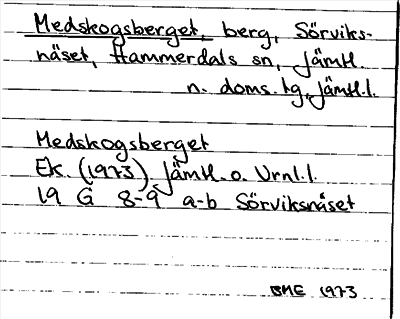 Medskogsberget, berg, Sörviks-
näset, Hammerdals sn, Jämtl.
n. doms. tg, Jämtl.l.
Medskogsberget
Ek. (1973) Jämtl. o. Vrnl.l.
19 G 8-9 a-b Sörviksnäset
BME 1973